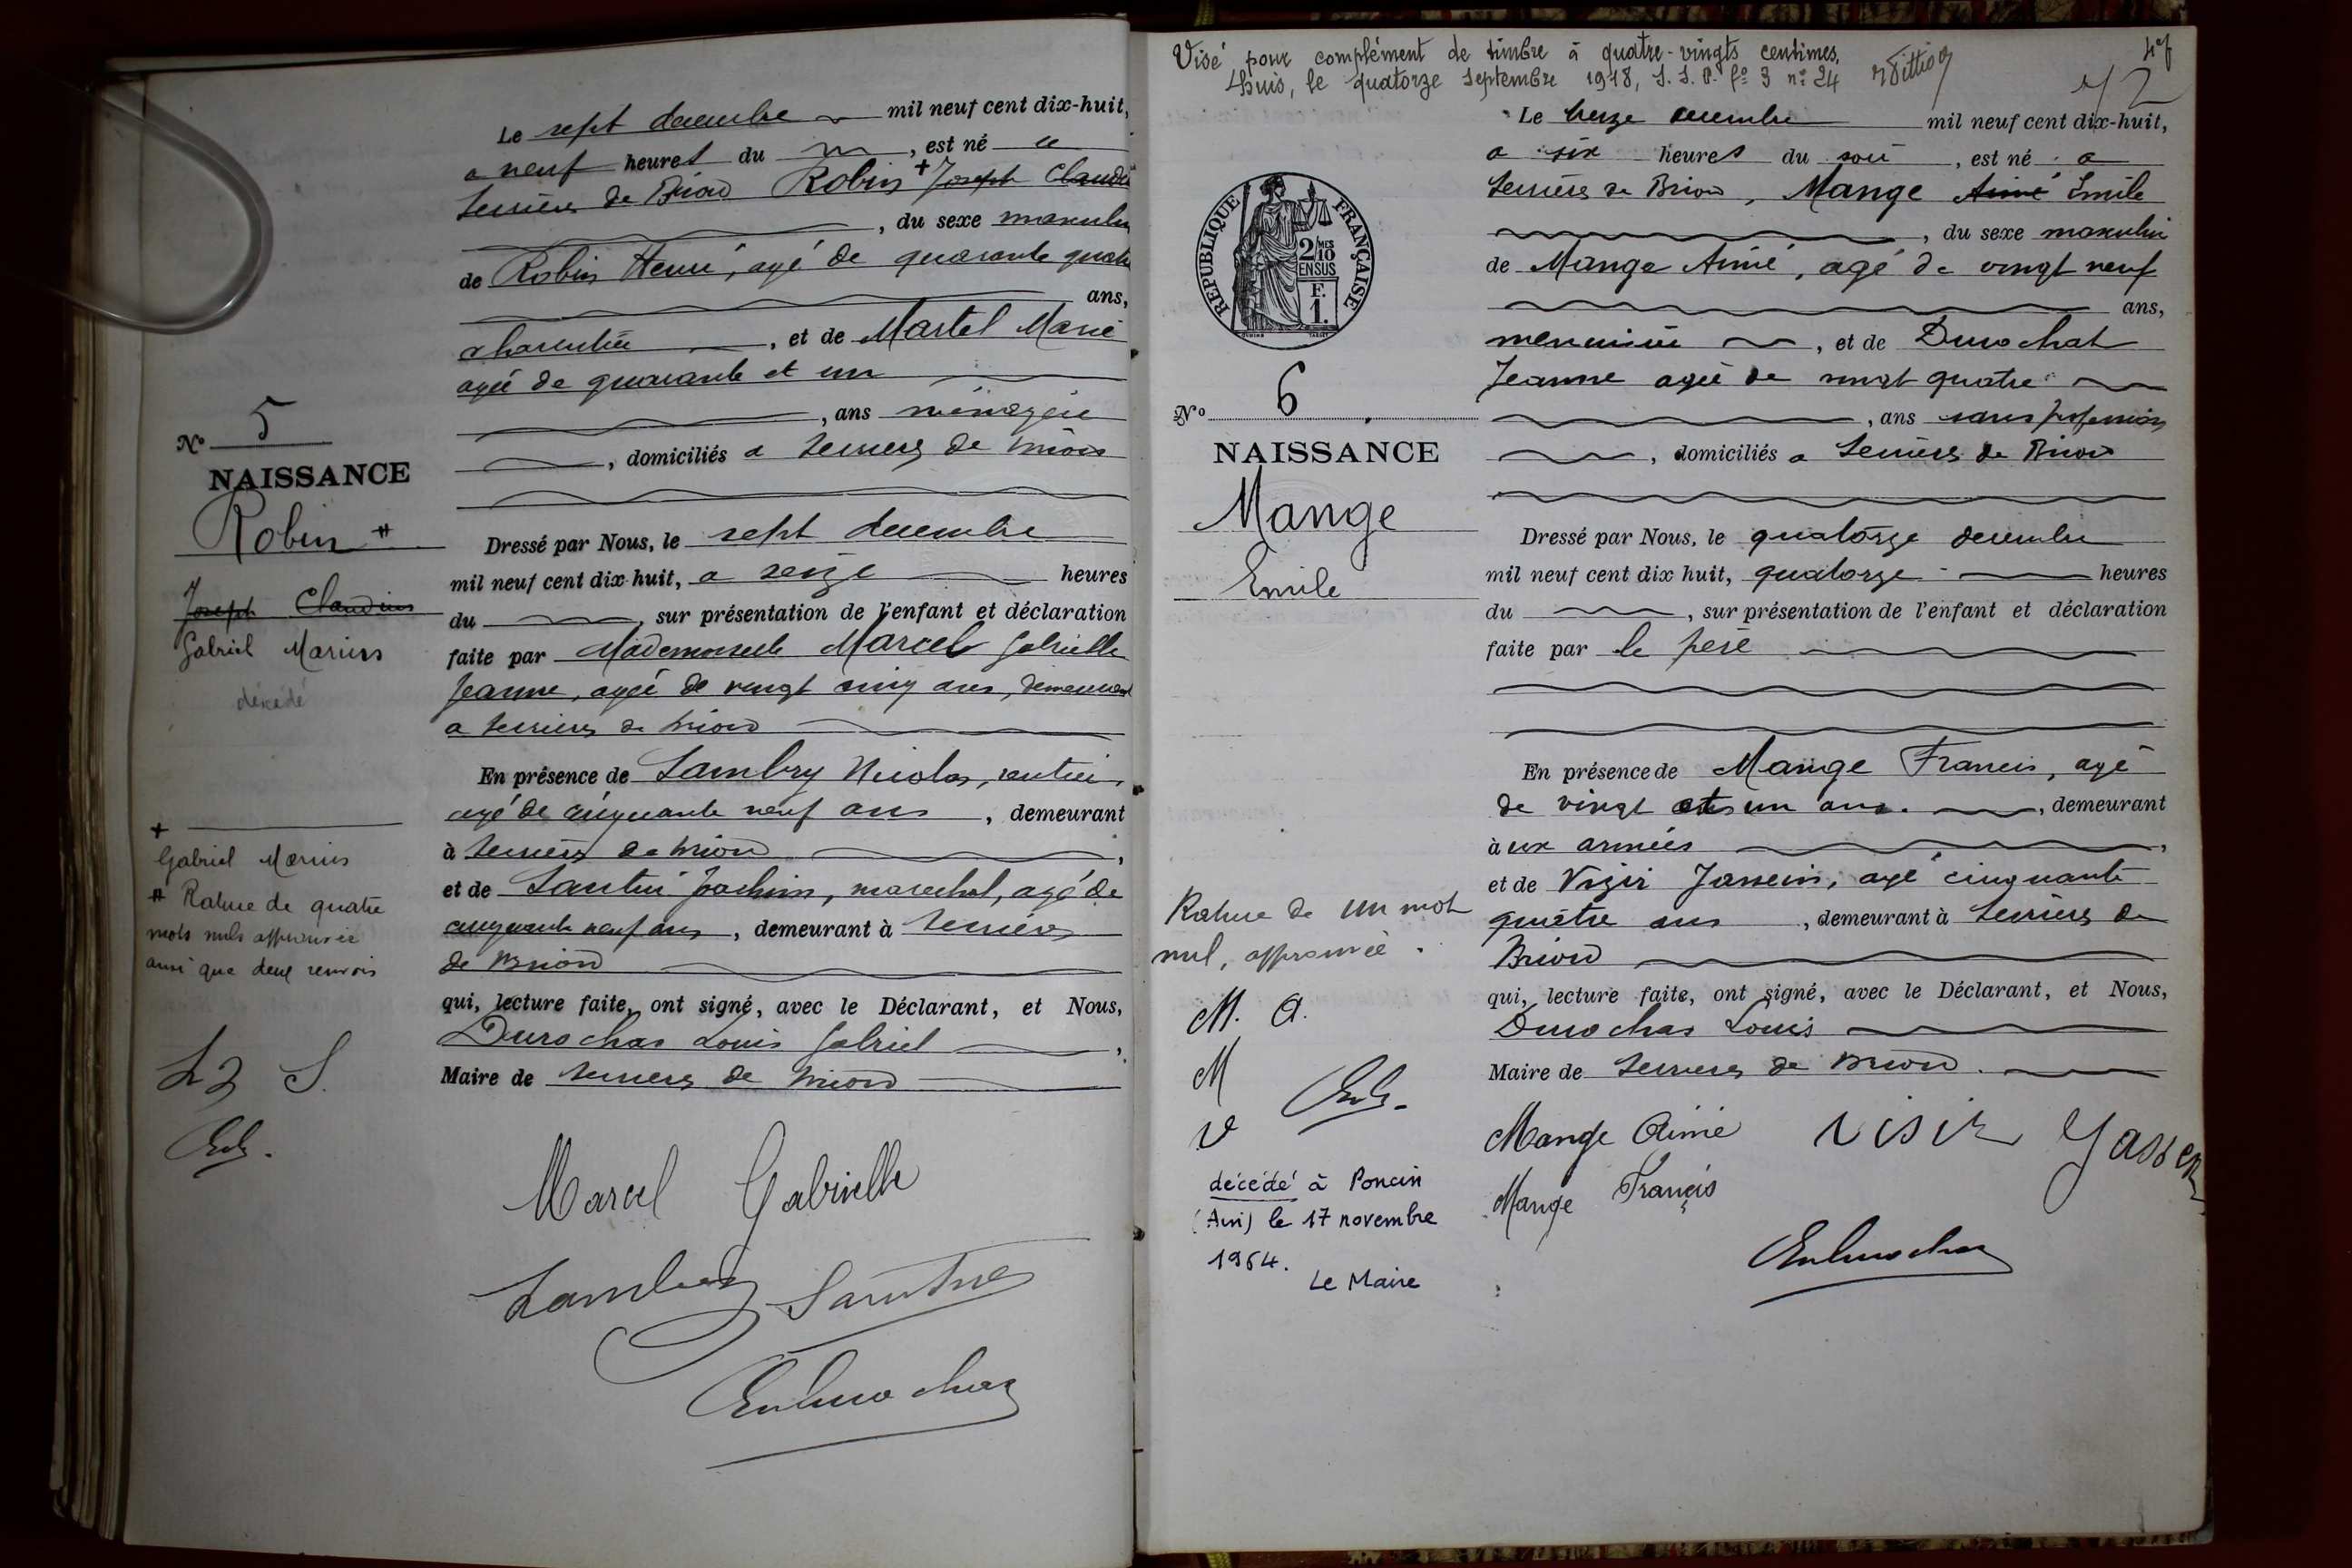 Le sept decembre mil neuf cent dix-huit,
a neuf heures du m, est né a
Serrières de Briord Robin + Joseph Claudius
, du sexe masculin
de Robin Henri, agé de quarante quatre
ans,
charcutier, et de Martel Marie
agée de quarante et un
, ans ménagère
, domiciliés a Serrières de Briord
N° 5
NAISSANCE
Robin #
Joseph Claudius
Gabriel Marius
décédé
Dressé par Nous, le sept decembre
mil neuf cent dix-huit, a seize heures
du , sur présentation de l'enfant et déclaration
faite par Mademoiselle Marcel Gabrielle
Jeanne, agée de vingt cinq ans, demeurant
a Serrières de Briord
En présence de Lambry Nicolas, rentier,
agé de cinquante neuf ans, demeurant
à Serrières de Briord,
et de Joachim, marechal, agé de
cinquante neuf ans, demeurant à Serrières
de Briord
qui, lecture faite, ont signé, avec le Déclarant, et Nous,
Durochas Louis Gabriel,
Maire de Serrières de Briord
+
Gabriel Marius
# Rature de quatre
mots nuls approuvée
ainsi que deux renvois
Marcel Gabrielle
Visé pour complément de timbre à quatre-vingts centimes.
Lhuis, le quatorze Septembre 1918, S. S. P. f° 3 n° 24
72
RÉPUBLIQUE FRANÇAISE
2/10 MES
EN SUS
F.
1.
N° 6
NAISSANCE
Mange
Emile
Le treize decembre mil neuf cent dix-huit,
a six heures du soir, est né a
Serrières de Briord, Mange Aimé Emile
, du sexe masculin
de Mange Aimé, agé de vingt neuf
ans,
menuisier, et de Durochat
Jeanne agée de vingt quatre
, ans sans profession
, domiciliés a Serrières de Briord
Dressé par Nous, le quatorze decembre
mil neuf cent dix huit, quatorze heures
du , sur présentation de l'enfant et déclaration
faite par le père
En présence de Mange Francis, agé
de vingt et un ans, demeurant
à ux armées,
et de Vizir Jassein, agé cinquante
quatre ans, demeurant à Serrières de
Briord
qui, lecture faite, ont signé, avec le Déclarant, et Nous,
Durochas Louis
Maire de Serrières de Briord.
Rature de un mot
nul, approuvée.
M. A.
M
V
décédé à Poncin
(Ain) le 17 novembre
1964.
Le Maire
Mange Aimé Visir
Mange Francis